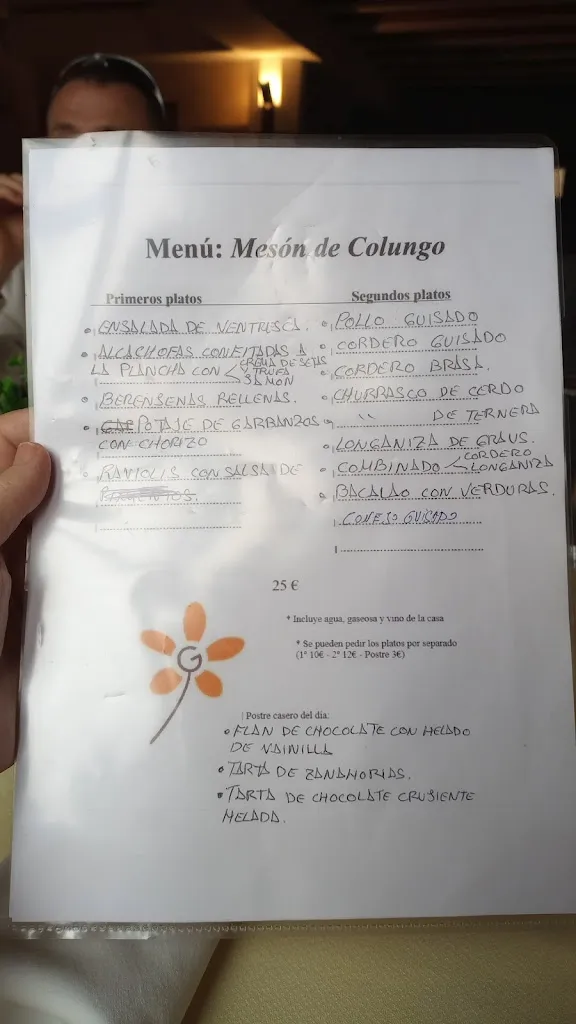 Menú: Mesón de Colungo
Primeros platos
ENSALADA DE VENTRESCA.
ALCACHOFAS CONFITADAS A
LA PLANCHA CON CREMA DE SETAS
Y TRUFA
JAMON
BERENGENAS RELLENAS.
POTAJE DE GARBANZOS
CON CHORIZO
RAVIOLIS CON SALSA DE
Segundos platos
POLLO GUISADO
CORDERO GUISADO
CORDERO BRASA.
CHURRASCO DE CERDO
" DE TERNERA
LONGANIZA DE GRAUS.
COMBINADO CORDERO
LONGANIZA
BACALAO CON VERDURAS.
CONEJO GUISADO
25 €
* Incluye agua, gaseosa y vino de la casa
* Se pueden pedir los platos por separado
(1º 10€ - 2º 12€ - Postre 3€)
G
Postre casero del día:
FLAN DE CHOCOLATE CON HELADO
DE VAINILLA
TARTA DE ZANAHORIAS.
TARTA DE CHOCOLATE CRUJIENTE
HELADA.